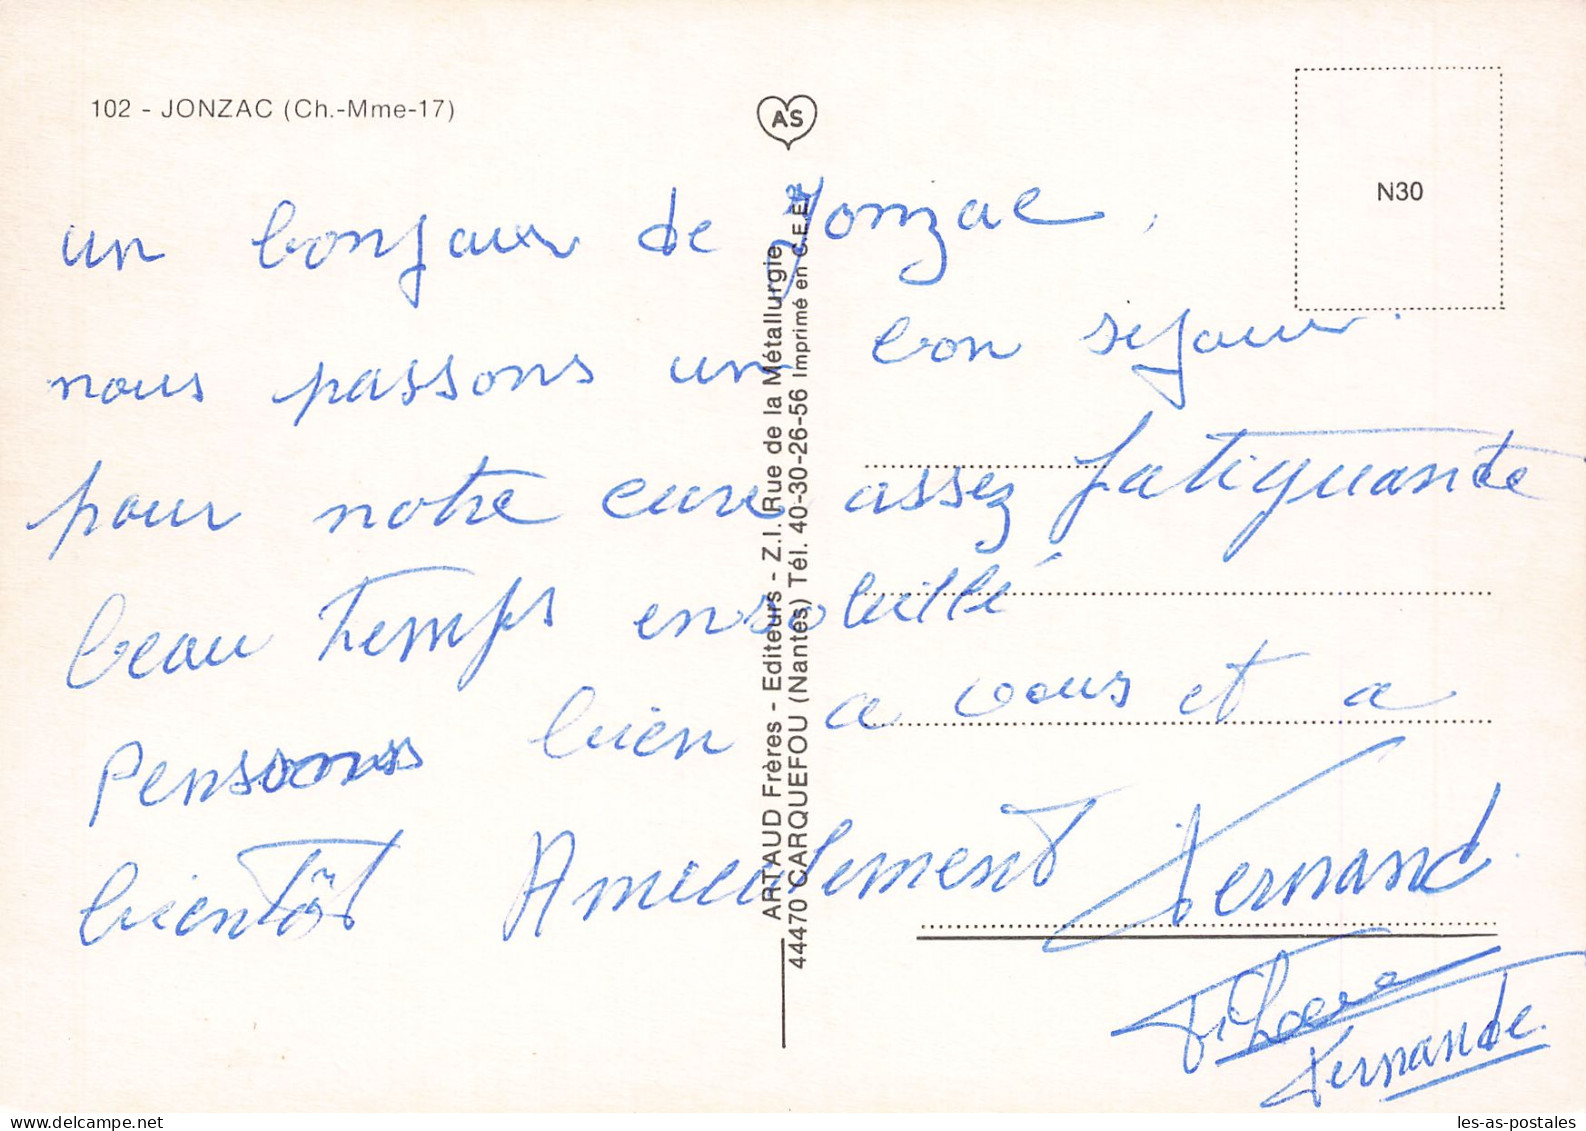 102 - JONZAC (Ch.-Mme-17)
AS
N30
un bonjour de Jonzac,
nous passons un bon séjour.
pour notre cure assez fatiguante
beau temps ensoleillé
Pensons bien a vous et a
bientôt Amicalement Fernand
Fernande.
ARTAUD Frères - Editeurs - Z.I. Rue de la Métallurgie
44470 CARQUEFOU (Nantes) Tél. 40-30-26-56 Imprimé en C.E.E.
les-as-postales